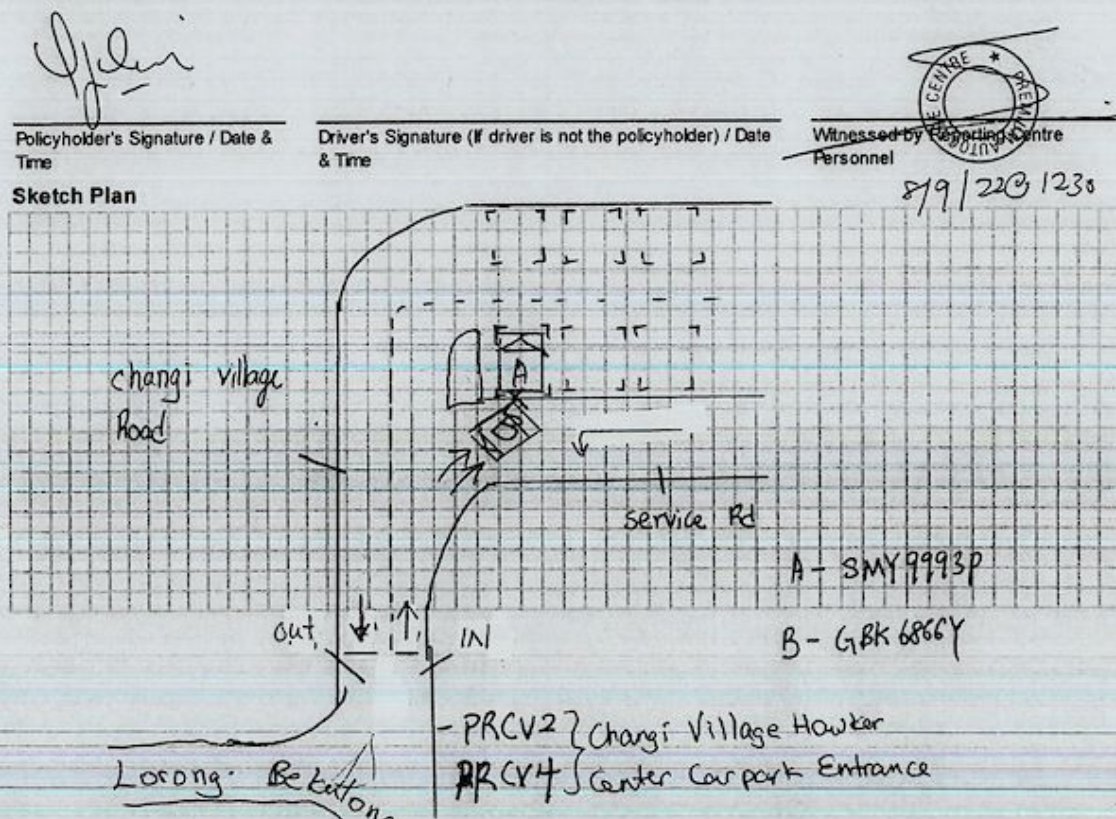 Policyholder's Signature / Date & Time
Driver's Signature (If driver is not the policyholder) / Date & Time
Witnessed by Reporting Centre Personnel
CENTRE * PREMIUM AUTOCARE
8/9/22@ 1230
Sketch Plan
changi village
Road
A
B
service Rd
A - SMY9993P
B - GBK6866Y
out
IN
- PRCV2 } Changi Village Hawker
PRCV4 } Center Carpark Entrance
Lorong Bekukong